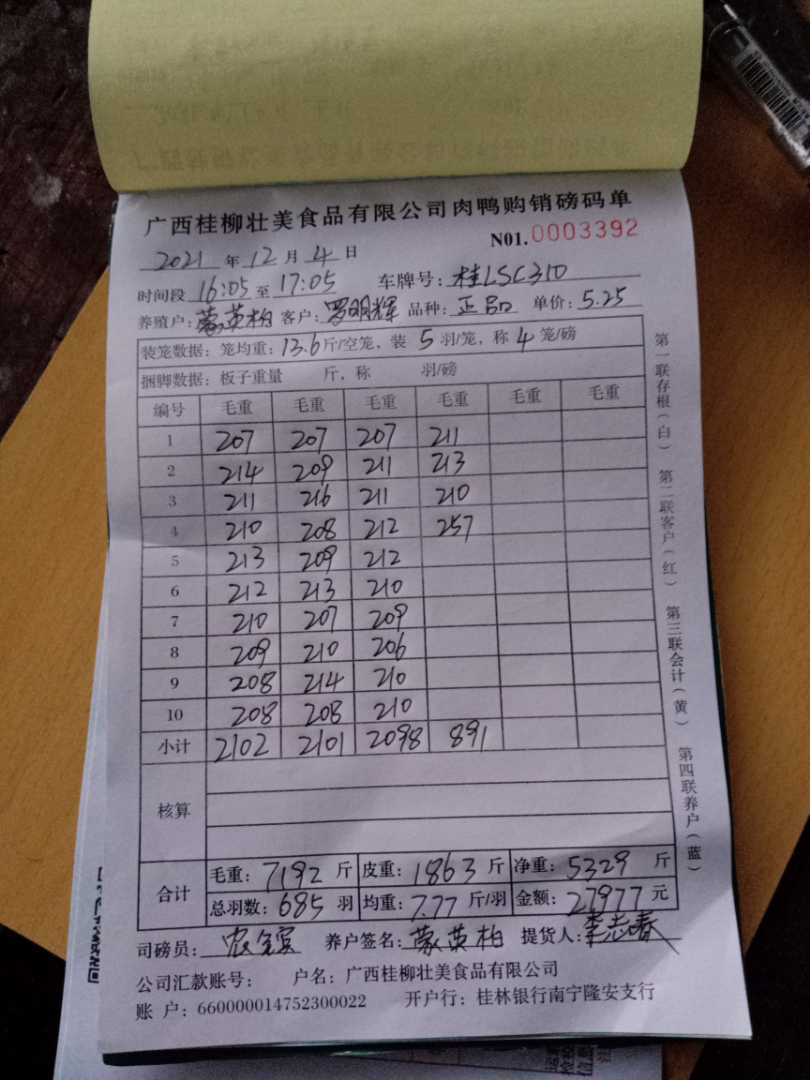 广西桂柳壮美食品有限公司肉鸭购销磅码单
N01.0003392
2021 年 12 月 4 日
时间段 16:05 至 17:05 车牌号: 桂LSC310
养殖户: 蒙英柏 客户: 罗明辉 品种: 正品 单价: 5.25
装笼数据: 笼均重: 13.6 斤/空笼, 装 5 羽/笼, 称 4 笼/磅
捆脚数据: 板子重量 斤, 称 羽/磅
编号 毛重 毛重 毛重 毛重 毛重 毛重
1 207 207 207 211
2 214 209 211 213
3 211 216 211 210
4 210 208 212 257
5 213 209 212
6 212 213 210
7 210 207 209
8 209 210 206
9 208 214 210
10 208 208 210
小计 2102 2101 2098 891
核算
合计 毛重: 7192 斤 皮重: 1863 斤 净重: 5329 斤
总羽数: 685 羽 均重: 7.77 斤/羽 金额: 27977 元
司磅员: 养户签名: 蒙英柏 提货人: 李志春
公司汇款账号: 户名: 广西桂柳壮美食品有限公司
账 户: 660000014752300022 开户行: 桂林银行南宁隆安支行
第一联存根(白) 第二联客户(红) 第三联会计(黄) 第四联养户(蓝)